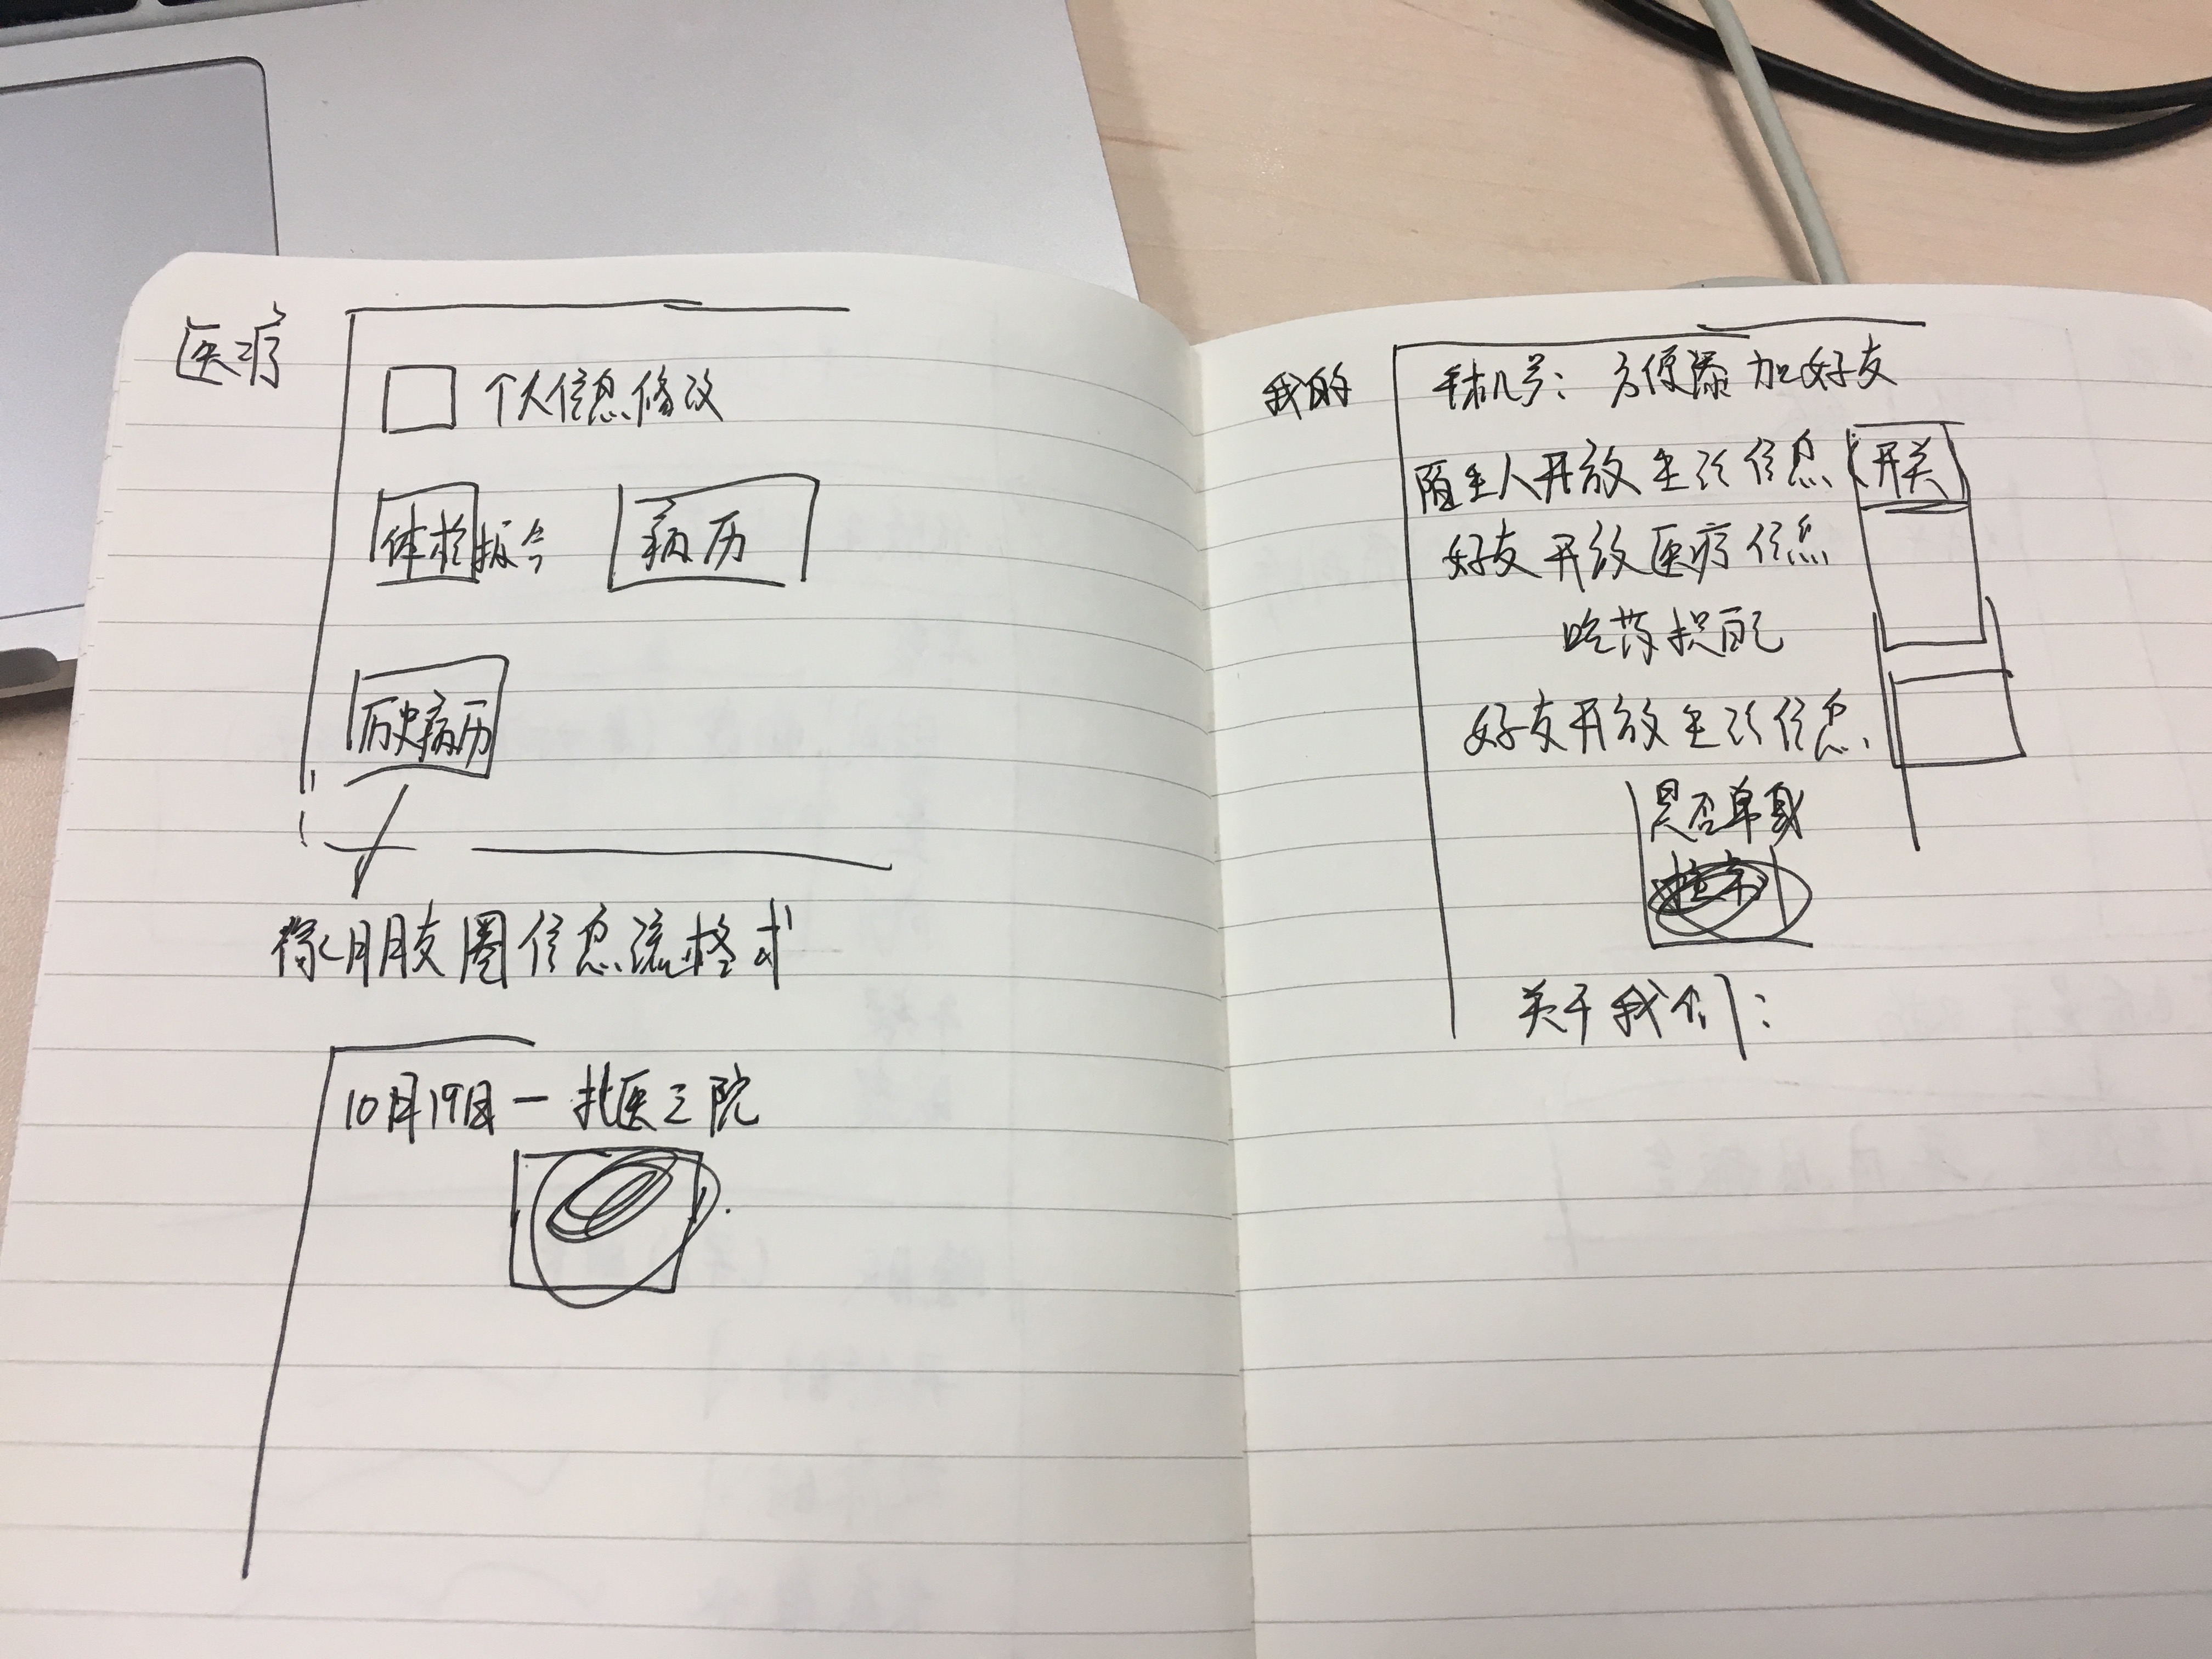 医疗
个人信息修改
体检报告
病历
历史病历
像朋友圈信息流格式
10月19日一北医三院
我的
手机号：方便添加好友
陌生人开放生活信息 开关
好友开放医疗信息
吃药提配
好友开放生活信息
是否单身
关于我们：